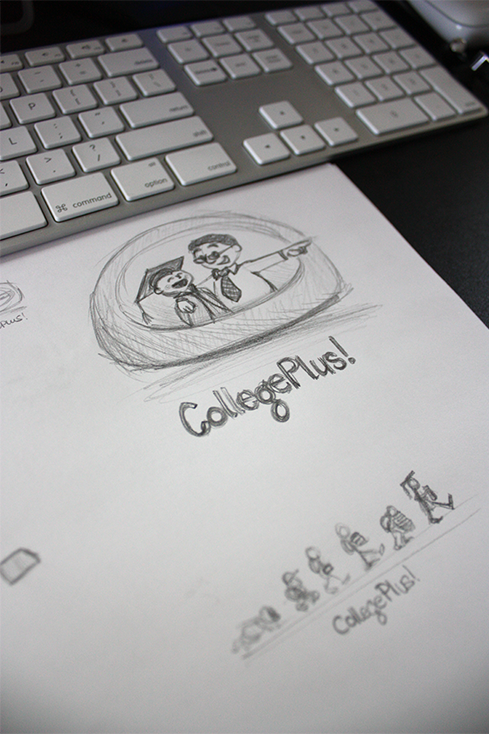 P
return
L
shift
command
option
control
CollegePlus!
CollegePlus!
Plus!